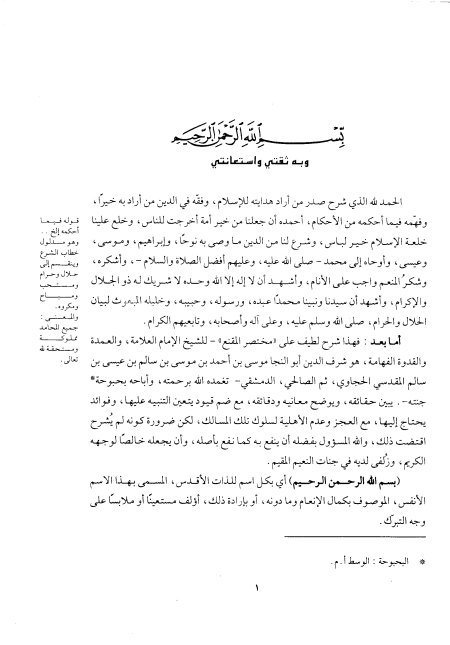 بِسْمِ اللَّهِ الرَّحْمَنِ الرَّحِيمِ
وبه ثقتي واستعانتي
الحمد لله الذي شرح صدر من أراد هدايته للإسلام، وفقّه في الدين من أراد به خيرًا،
وفهّمه فيما أحكمه من الأحكام، أحمده أن جعلنا من خير أمة أخرجت للناس، وخلع علينا
خلعة الإسلام خير لباس، وشرع لنا من الدين ما وصى به نوحًا، وإبراهيم، وموسى،
وعيسى، وأوحاه إلى محمد - صلى الله عليه، وعليهم أفضل الصلاة والسلام -، وأشكره،
وشكر المنعم واجب على الأنام، وأشهد أن لا إله إلا الله وحده لا شريك له ذو الجلال
والإكرام، وأشهد أن سيدنا ونبينا محمدًا عبده، ورسوله، وحبيبه، وخليله المبعوث لبيان
الحلال والحرام، صلى الله وسلم عليه، وعلى آله وأصحابه، وتابعيهم الكرام.
أما بعد : فهذا شرح لطيف على «مختصر المقنع» - للشيخ الإمام العلامة، والعمدة
والقدوة الفهامة، هو شرف الدين أبو النجا موسى بن أحمد بن موسى بن سالم بن عيسى بن
سالم المقدسي الحجاوي، ثم الصالحي، الدمشقي - تغمده الله برحمته، وأباحه بحبوحة*
جنته -. يبين حقائقه، ويوضح معانيه ودقائقه، مع ضم قيود يتعين التنبيه عليها، وفوائد
يحتاج إليها، مع العجز وعدم الأهلية لسلوك تلك المسالك، لكن ضرورة كونه لم يُشرح
اقتضت ذلك، والله المسؤول بفضله أن ينفع به كما نفع بأصله، وأن يجعله خالصًا لوجهه
الكريم، وزُلفى لديه في جنات النعيم المقيم.
(بسم الله الرحمن الرحيم) أي بكل اسم للذات الأقدس، المسمى بهذا الاسم
الأنفس، الموصوف بكمال الإنعام وما دونه، أو بإرادة ذلك، أؤلف مستعينًا أو ملابسًا على
وجه التبرك.
قوله فيما
أحكمه إلخ ..
وهو مدلول
خطاب الشرع
وينقسم إلى
حلال وحرام
ومستحب
ومباح
ومكروه.
والمعنى :
جميع المحامد
مملوكة
ومستحقة لله
تعالى.
* البحبوحة : الوسط أ. م.
١